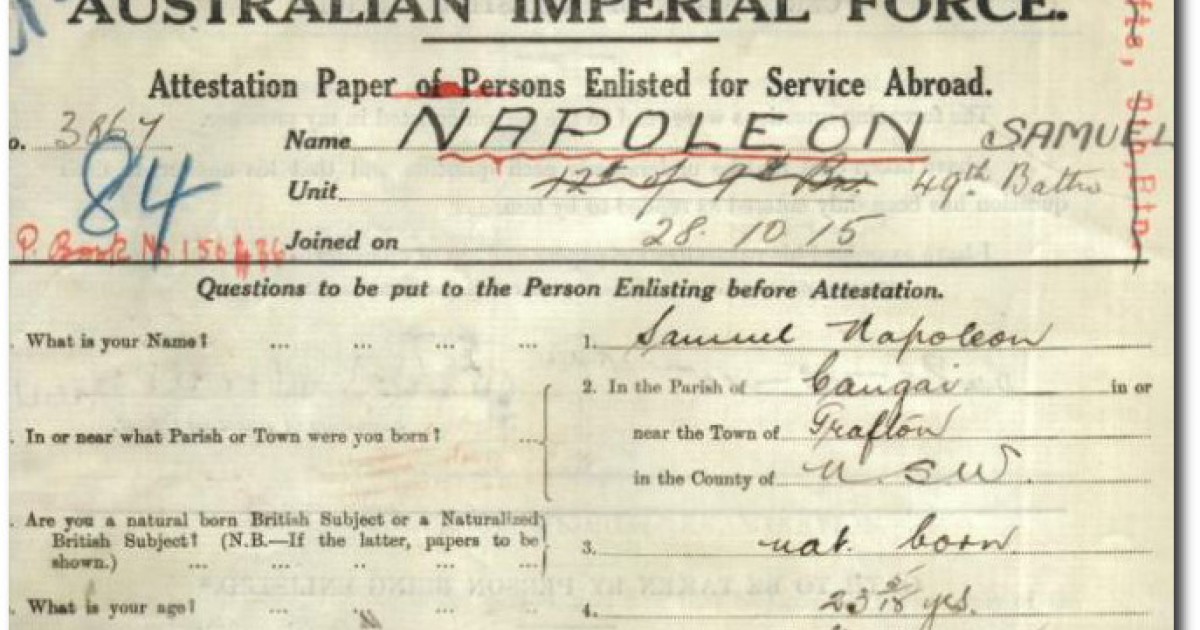 AUSTRALIAN IMPERIAL FORCE.
Attestation Paper of Persons Enlisted for Service Abroad.
o. 3867 Name NAPOLEON SAMUEL
84
Unit 12th of 9th Bn. 49th Battn
P. Book No 156 36 Joined on 28. 10 15
fts, 9th, Btn.
Questions to be put to the Person Enlisting before Attestation.
. What is your Name? ... ... ... ... 1. Samuel Napoleon
2. In the Parish of Cangai in or
. In or near what Parish or Town were you born? ... near the Town of Grafton
in the County of N. S W.
. Are you a natural born British Subject or a Naturalized
British Subject? (N.B.—If the latter, papers to be 3. nat. born.
shown.) ... ... .. ... ...
. What is your age? ... ... ... .. 4. 23 yrs.